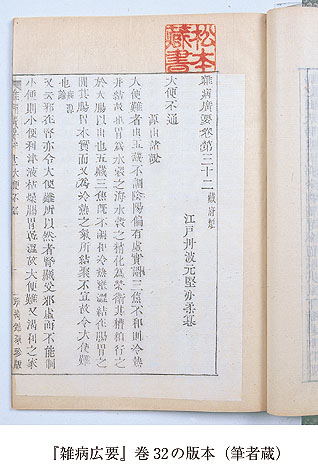 松本
藏書
雜病廣要卷第三十二 藏府類
江戶丹波元堅亦柔纂
大便不通
源由諸說
大便難者由五藏不調陰陽偏有虛實謂三焦不和則冷熱
并結故也胃為水穀之海水穀之精化為榮衛其糟粕行之
於大腸以出也五藏三焦既不調和冷熱壅澀結在腸胃之
間其腸胃本實而又為冷熱之氣所結聚不宣故令大便難
也 病源論
又云邪在腎亦令大便難所以然者腎藏受邪虛而不能制
小便則小便利津液枯燥腸胃乾澀故大便難又渴利之家
『雑病広要』巻32の版本（筆者蔵）